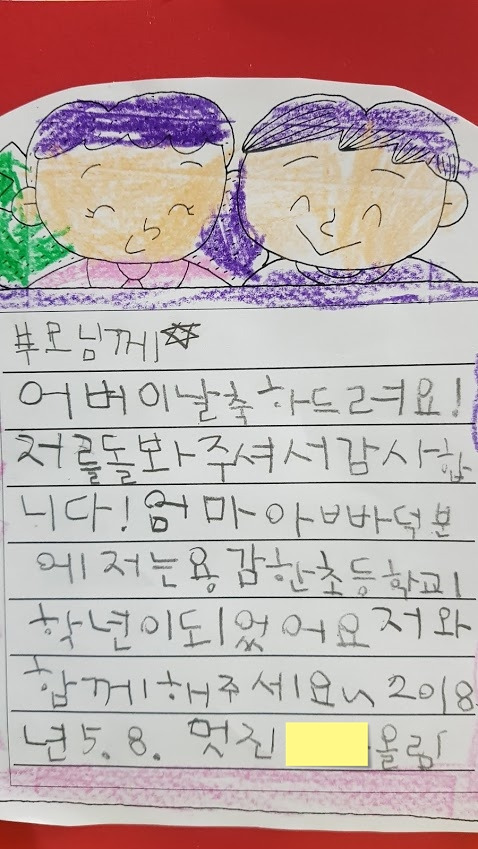 부모님께☆
어버이날축하드려요!
저를돌봐주셔서감사합
니다! 엄마아빠덕분
에저는용감한초등학교1
학년이되었어요 저와
함께해주세요~ 2018
년5.8. 멋진 올림